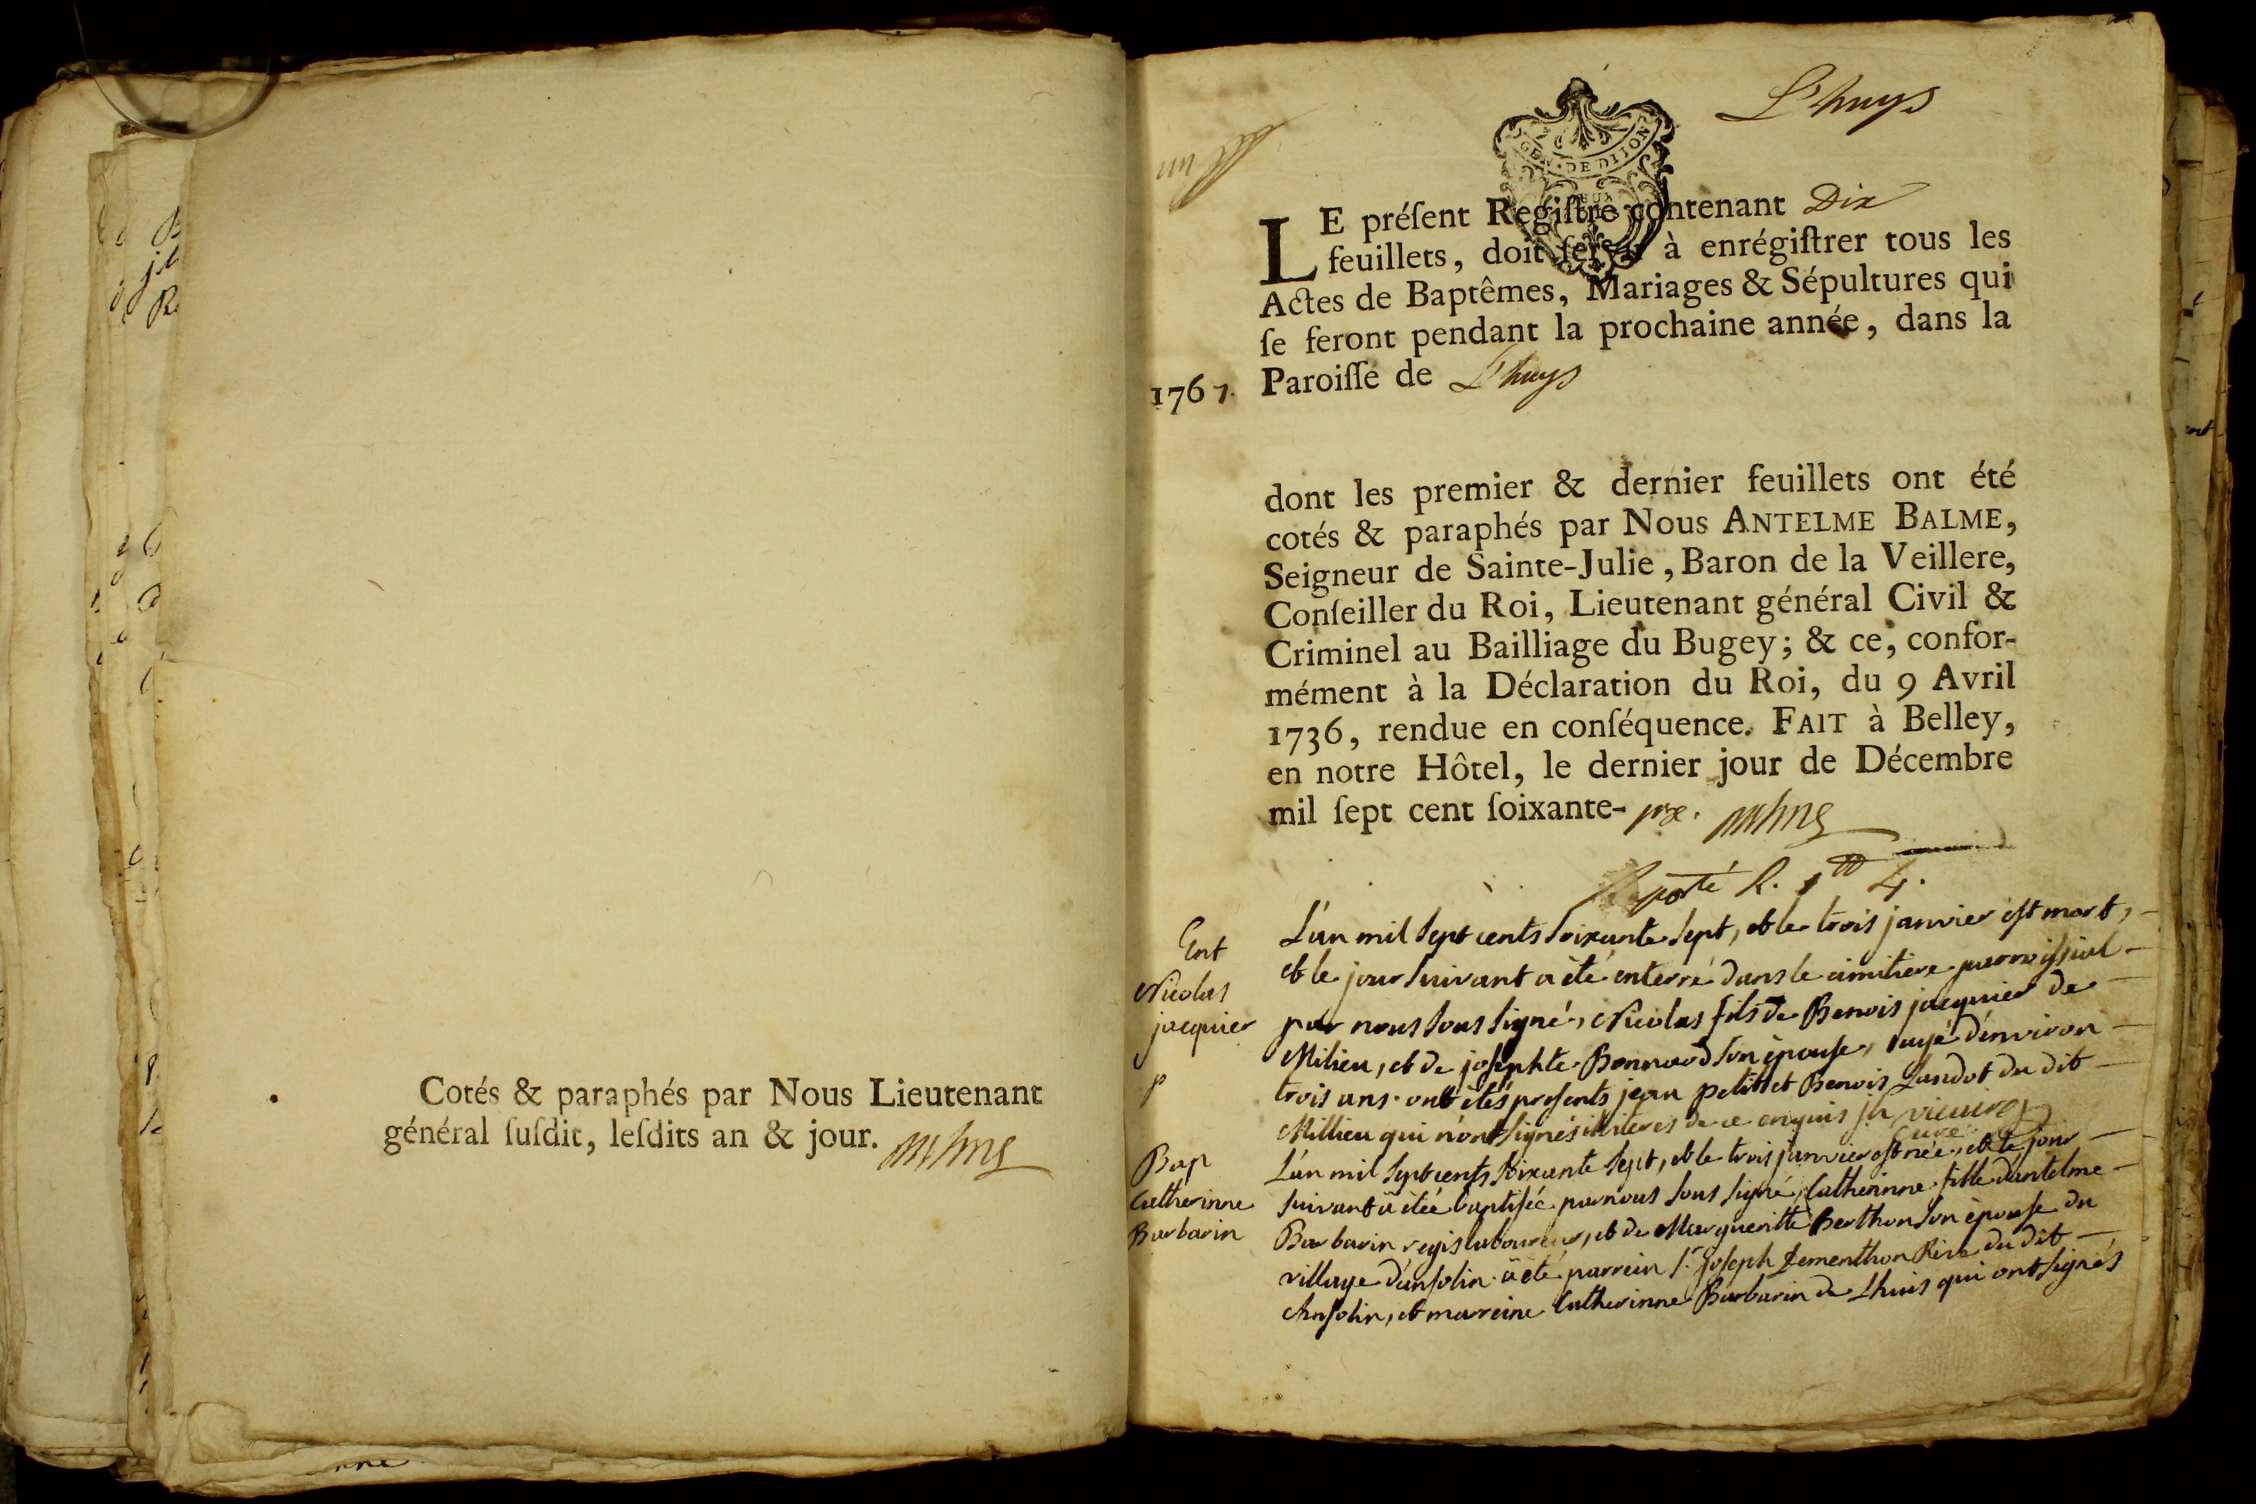 Cotés & paraphés par Nous Lieutenant
général ſuſdit, leſdits an & jour.
L'huys
un
GEN. DE DIJON
LE préſent Regiſtre contenant Dix
feuillets, doit ſervir à enrégiſtrer tous les
Actes de Baptêmes, Mariages & Sépultures qui
ſe feront pendant la prochaine année, dans la
1767. Paroiſſe de L'huys
dont les premier & dernier feuillets ont été
cotés & paraphés par Nous ANTELME BALME,
Seigneur de Sainte-Julie, Baron de la Veillere,
Conſeiller du Roi, Lieutenant général Civil &
Criminel au Bailliage du Bugey; & ce, confor-
mément à la Déclaration du Roi, du 9 Avril
1736, rendue en conſéquence. FAIT à Belley,
en notre Hôtel, le dernier jour de Décembre
mil ſept cent ſoixante-
Ent
Nicolas
jacquier
p
L'an mil sept cents soixante sept, et le trois janvier est mort,
et le jour suivant a èté enterré dans le cimitiere parroissial
par nous sous signé, Nicolas fils de Benois jacquier de
Milieu, et de josephte Bonnard son èpouse, aagé d'environ
trois ans. ont etés presents jean petit et Benois Landot du dit
Millieu qui n'ont signés illiterés de ce enquis
curé
Bap
Catherinne
Barbarin
L'an mil sept cents soixante sept, et le trois janvier est née, et le jour
suivant a étée baptisée par nous sous signé, Catherinne fille d'antelme
Barbarin regis laboureur, et de Margueritte Berthon son èpouse du
village d'ansolin. a eté parrein Sr. Joseph Dementhon Rive du dit
Ansolin, et marreine Catherinne Barbarin de Lhuis qui ont signés